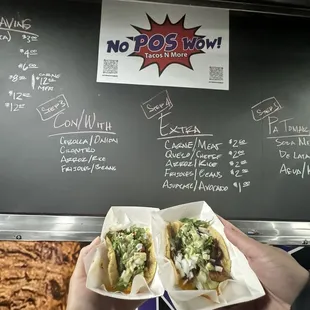 $3.00
$4.00
$6.00
$8.00
$12.00
$12.00
No POS Wow!
Tacos N More
Step 3
Con/With
Cebolla/Onion
Cilantro
Arroz/Rice
Frijoles/Beans
Extra
Carne/Meat $2.00
Queso/Cheese $2.00
Arroz/Rice $2.00
Frijoles/Beans $2.00
Aguacate/Avocado $1.00
Pa Tomar
Soda
De Lata
Agua/